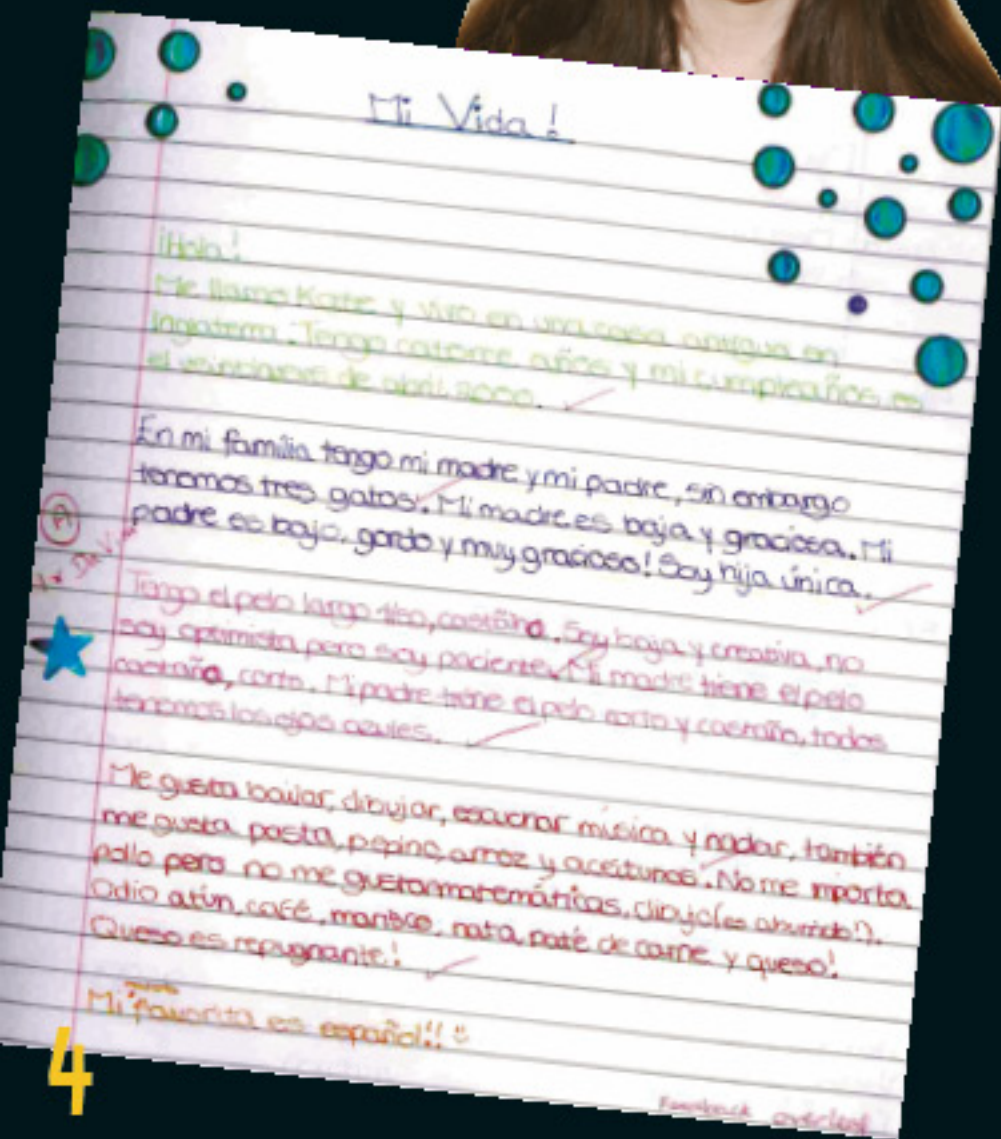 Mi Vida!
¡Hola!
Me llamo Katie y vivo en una casa antigua en
Inglaterra. Tengo catorce años y mi cumpleaños es
el de abril 2000.
En mi familia tengo mi madre y mi padre, sin embargo
tenemos tres gatos. Mi madre es baja y graciosa. Mi
padre es bajo, gordo y muy gracioso! Soy hija única.
A
Tengo el pelo largo liso, castaño. Soy baja y creativa, no
soy optimista pero soy paciente. Mi madre tiene el pelo
castaño, corto. Mi padre tiene el pelo corto y castaño, todos
tenemos los ojos azules.
Me gusta bailar, dibujar, escuchar música y nadar, también
me gusta pasta, pepino, arroz y aceitunas. No me importa
pollo pero no me gustan matemáticas, dibujo (es aburrido!).
Odio atún, café, marisco, nata, paté de carne y queso!
Queso es repugnante!
Mi favorita es español!!
Feedback overleaf
4